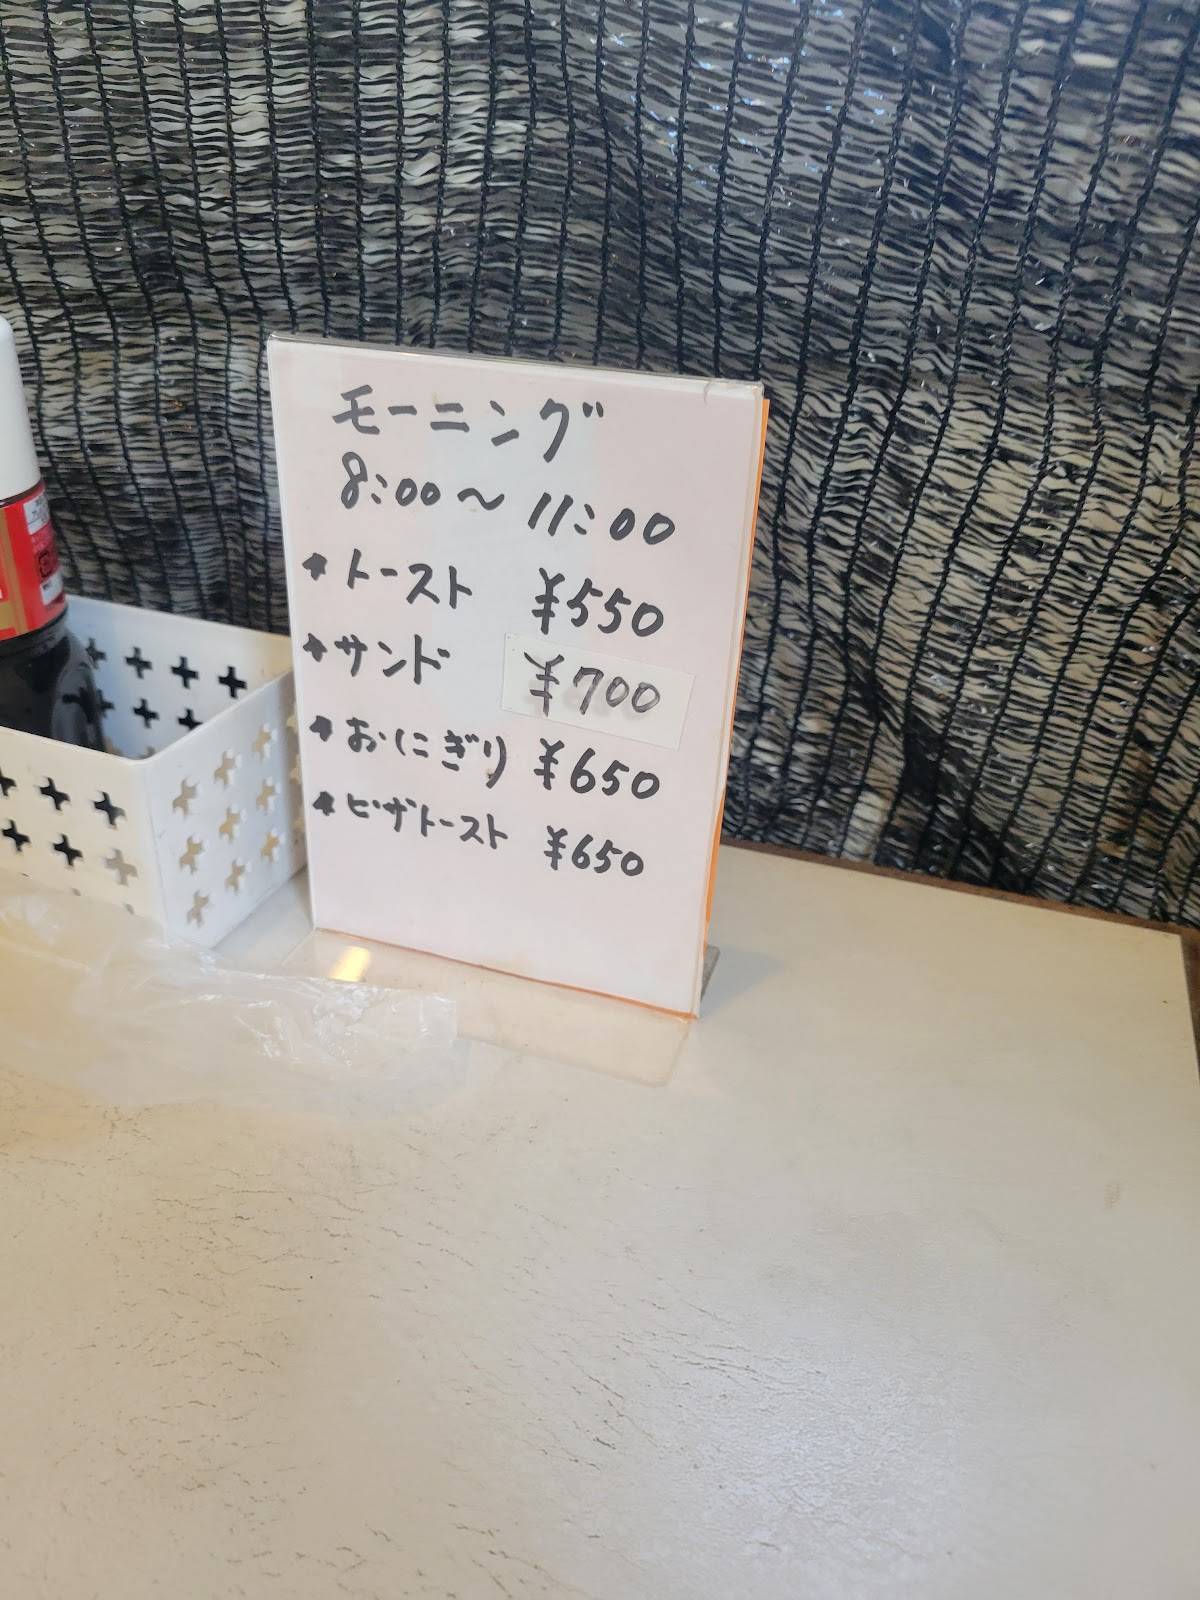 モーニング
8:00〜11:00
★トースト ¥550
★サンド ¥700
★おにぎり ¥650
★ピザトースト ¥650